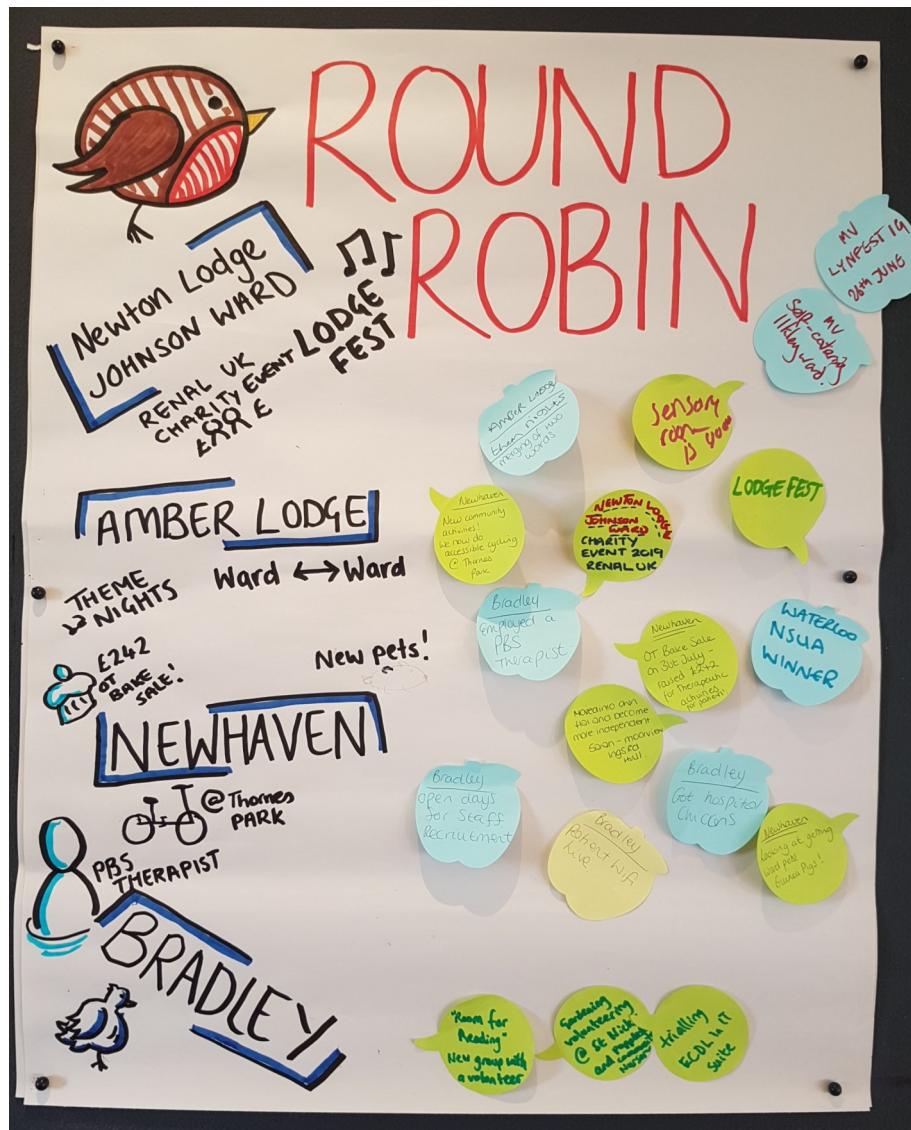 ROUND
ROBIN
Newton Lodge
JOHNSON WARD
RENAL UK
CHARITY EVENT
£
LODGE
FEST
AMBER LODGE
THEME
NIGHTS
Ward ↔ Ward
£242
OT
BAKE
SALE!
New pets!
NEWHAVEN
@ Thornes
PARK
PBS
THERAPIST
BRADLEY
MV
LYNFEST 19
26th JUNE
MV
Self-catering
Ilkley ward.
AMBER LODGE
theem nights
merging of two
words
Sensory
room
is
LODGE FEST
Newhaven
New community
activities!
We now do
accessible cycling
@ Thornes
Park
NEWTON LODGE
JOHNSON
WARD
CHARITY
EVENT 2019
RENAL UK
Bradley
Employed a
PBS
Therapist
Newhaven
OT Bake Sale
on 31st July -
raised £242
for Therapeutic
activities
for patients!
WATERLOO
NSUA
WINNER
Moved into own
flat and become
more independent
soon - moorview
Bradley
open days
for Staff
Recruitment
Bradley
Patient Wifi
Live
Bradley
Get hospital
Chiccens
Newhaven
Looking at getting
ward pets!
Guinea Pigs!
"Room for
Reading"
New group with
a volunteer
Gardening
volunteering
@ St Nick
and
trialling
ECDL in IT
suite